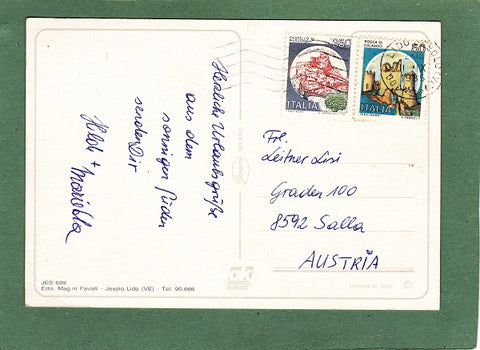 Herzliche Urlaubsgrüße
aus dem
sonnigen Süden
senden Dir
Hilde +
350
ITALIA
ROCCA DI
CALASCIO
50
ITALIA
Frl.
Leitner Lisi
Graden 100
8592 Salla
AUSTRIA
JES 599
Ediz. Mag.ni Favalli - Jesolo Lido (VE) - Tel. 90.666
Printed in Italy